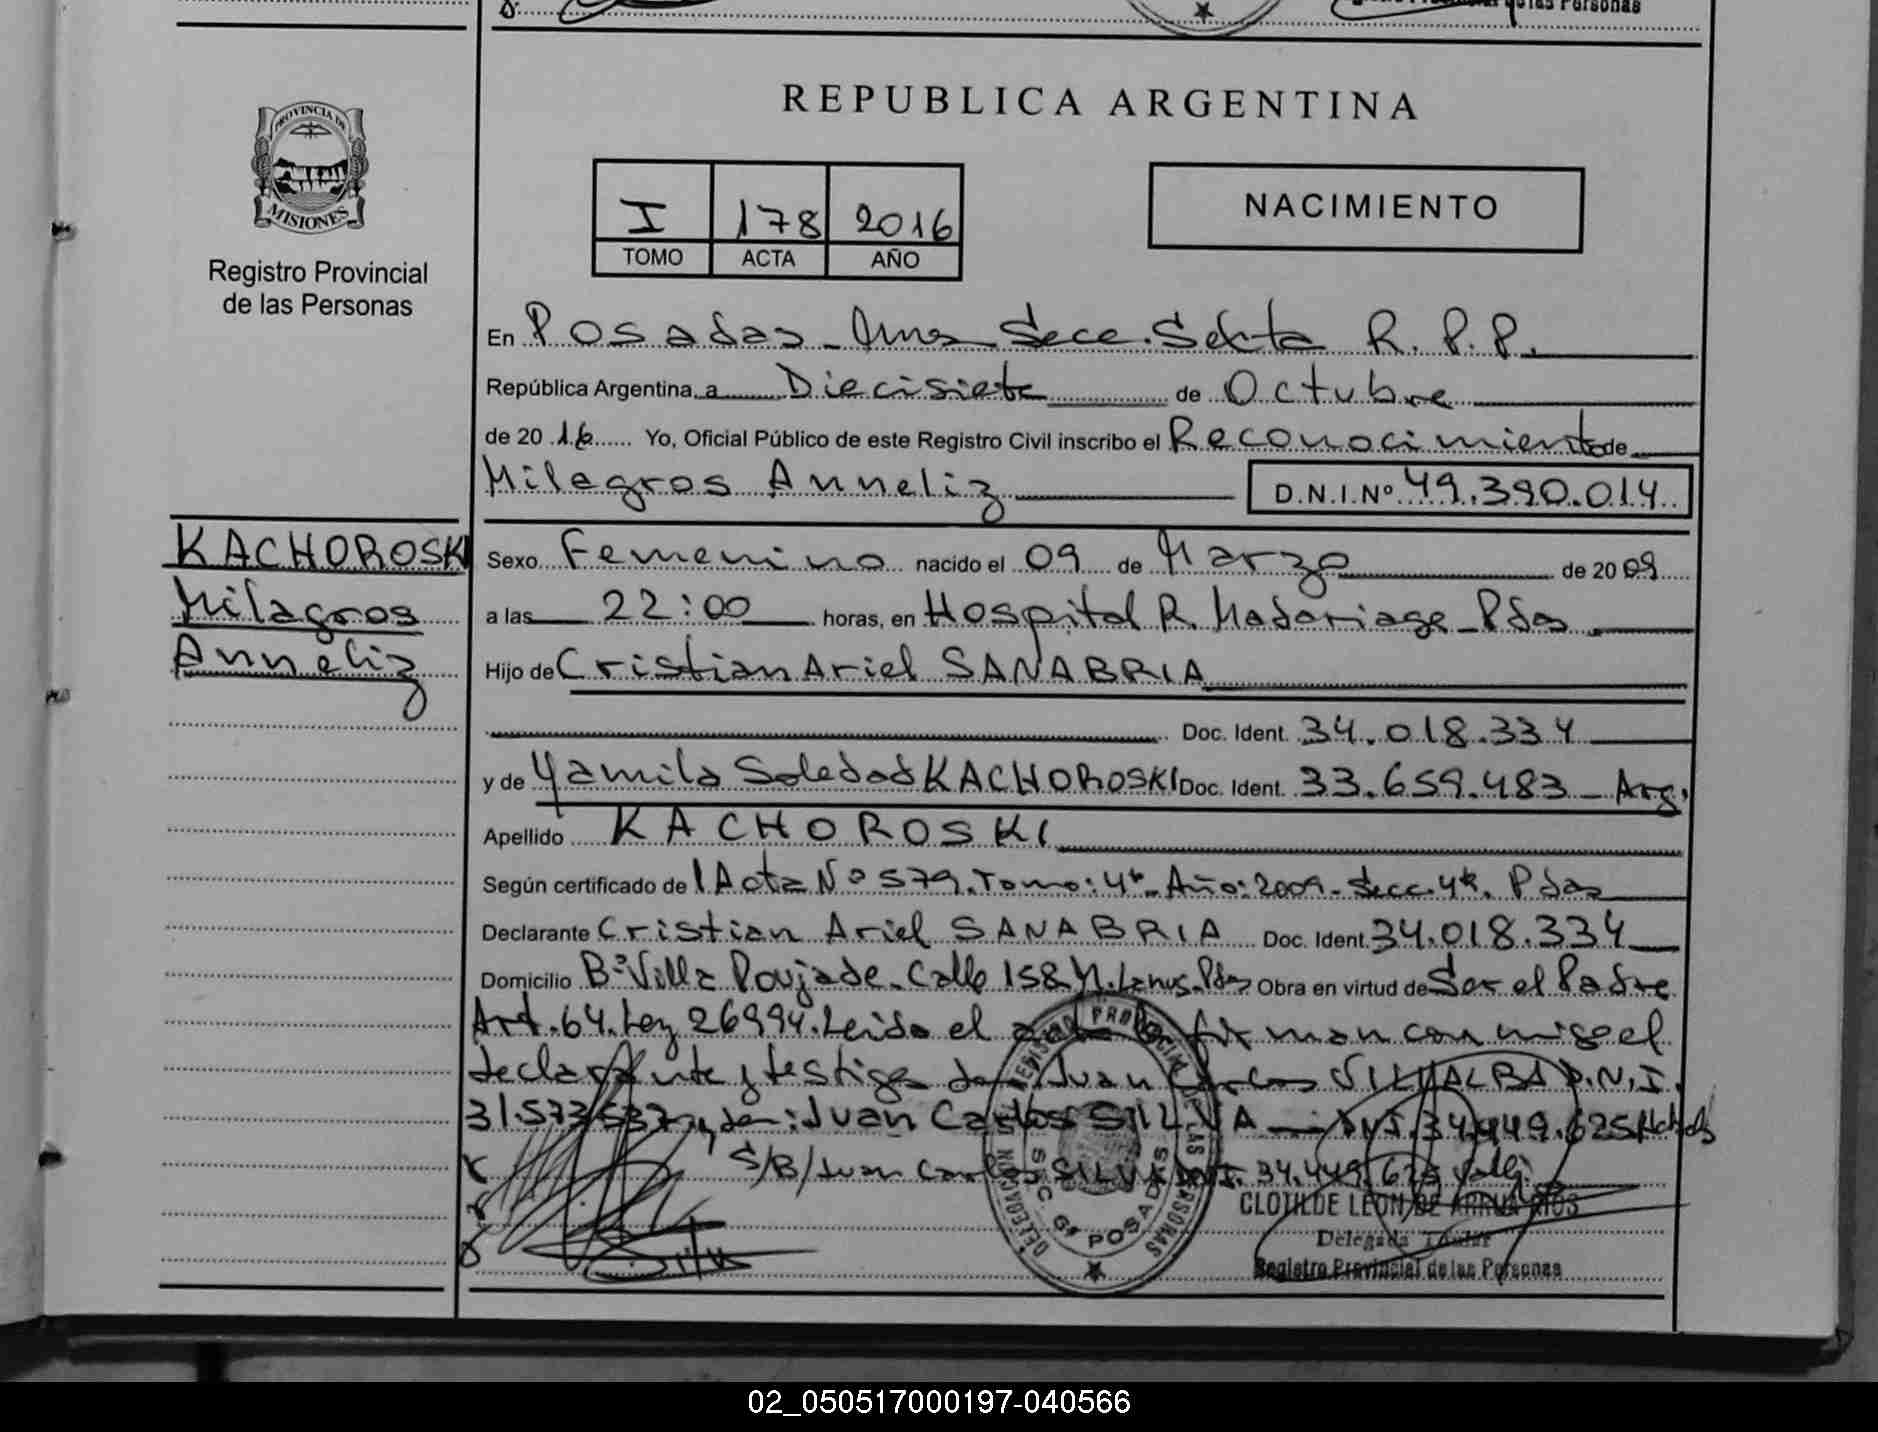 de las Personas
REPUBLICA ARGENTINA
PROVINCIA DE
MISIONES
Registro Provincial
de las Personas
I 178 2016
TOMO ACTA AÑO
NACIMIENTO
En Posadas - Mnes Secc. Sexta R.P.P.
República Argentina, a Diecisiete de Octubre
de 2016 Yo, Oficial Público de este Registro Civil inscribo el Reconocimiento de
Milagros Anneliz D.N.I.Nº 49.390.014
KACHOROSKI
Milagros
Anneliz
Sexo Femenino nacido el 09 de Marzo de 2009
a las 22:00 horas, en Hospital R. Madariaga - Pdas
Hijo de Cristian Ariel SANABRIA
Doc. Ident. 34.018.334
y de Yamila Soledad KACHOROSKI Doc. Ident. 33.659.483 - Arg.
Apellido KACHOROSKI
Según certificado de / Acta Nº 579. Tomo: 4º - Año: 2009 - Secc. 4ª. Pdas
Declarante Cristian Ariel SANABRIA Doc. Ident. 34.018.334
Domicilio Bº Villa Poujade - Calle 158 y Lanus - Pdas Obra en virtud de Ser el Padre
Art. 64. Ley 26994. Leida el acta la firman conmigo el
declarante y testigos don: Juan Carlos VILLALBA D.N.I.
31.573.537 y don: Juan Carlos SILVA DNI. 34.449.625
S/B/ Juan Carlos SILVA DNI. 34.449.625 Vale
REGISTRO PROVINCIAL DE LAS PERSONAS
DELEGACION
SECC. 6ª POSADAS
CLOTILDE LEON DE ARRUA RIOS
Delegada Titular
Registro Provincial de las Personas
02_050517000197-040566